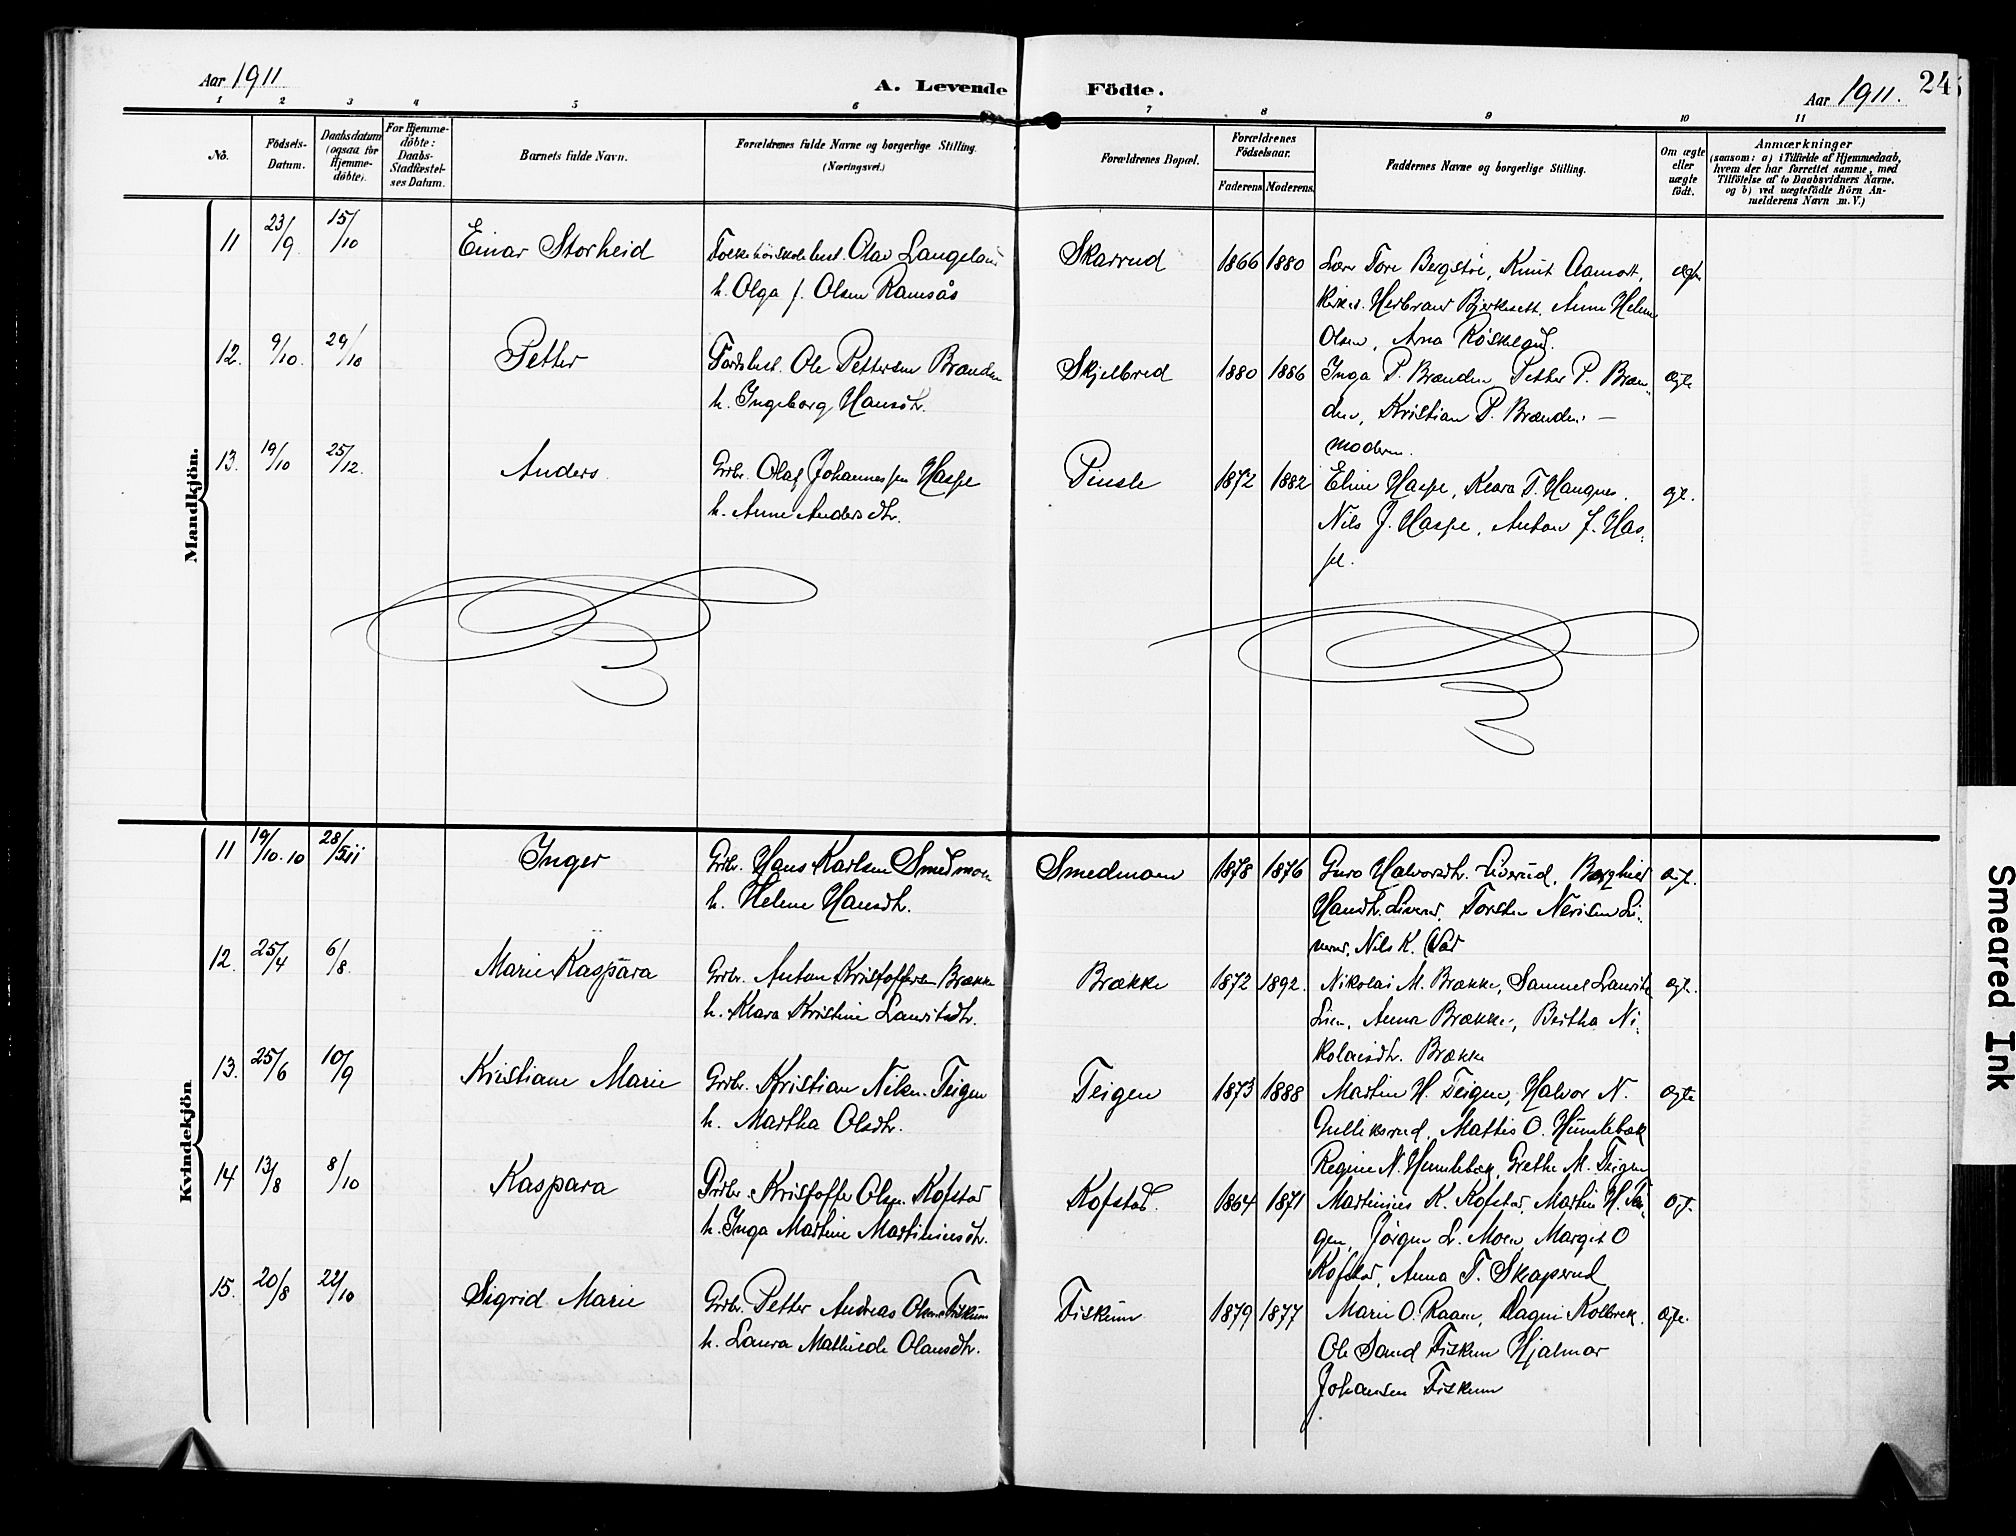 Aar 1911
A. Levende Födte.
Aar 1911.
24
1 2 3 4 5 6 7 8 9 10 11
No.
Födsels-Datum.
Daabsdatum (ogsaa for Hjemmedöbte).
For Hjemmedöbte: Daabs-Stadfæstelses Datum.
Barnets fulde Navn.
Forældrenes fulde Navne og borgerlige Stilling. (Næringsvei.)
Forældrenes Bopæl.
Forældrenes Födselsaar.
Faderens. Moderens.
Faddernes Navne og borgerlige Stilling.
Om ægte eller uægte födt.
Anmærkninger
(saasom: a) i Tilfælde af Hjemmedaab,
hvem der har forrettet samme, med
Tilföielse af to Daabsvidners Navne,
og b) ved uægtefödte Börn An-
melderens Navn m. V.)
Mandkjön.
11 23/9 15/10 Einar Storheid
Olav Langeland
h. Olga f. Olsen Ramsås
Skarrud 1866 1880
Lær Tore Bergstöl, Knut Aamodt,
Anne Helene
Olsen, Arna Röskeland.
ægte
12. 9/10. 29/10 Petter
Ole Pettersen Brænden
h. Ingeborg Hansdtr.
Skjelbred 1880 1886
Inga P. Brænden, Petter P. Bræn-
den, Kristian P. Brænden –
moderen.
ægte
13. 19/10 25/12. Anders.
Grbr. Olaf Johannessen Haspe
h. Anne Andersdtr.
1872 1882
Eline Haspe, Klara T. Haugnes.
Nils J. Haspe, Anton J. Has-
pe.
Kvindekjön
11 19/10.10 28/5 11 Inger
Grbr. Hans Karlsen Smedmoen
h. Helene Hansdtr.
Smedmoen 1878 1876
Guro Halvorsdtr. Liverud, Borghild
Hansdtr. Liverud, Torsten Nerisen Li-
verud, Nils K.
12. 25/4 6/8. Marie Kaspara
Grbr. Anton Kristoffersen Brække
h. Klara Kristine Lauritsdtr.
Brække 1872 1892.
Nikolai M. Brække, Samuel Laurits
Lien, Anna Brække, Bertha Ni-
kolaisdtr. Brække
ægte.
13. 25/6 10/9 Kristiane Marie
Grbr. Kristian Nilsen Teigen
h. Martha Olsdtr.
Teigen 1873 1888
Martin H. Teigen, Halvor N.
Gulliksrud, Mathis O. Humlebæk
Regine N. Humlebæk, Grethe M. Teigen
ægte
14 13/8 8/10 Kaspara
Grbr. Kristoffer Olsen Kopstad
h. Inga Martine Martiniusdtr.
Kopstad. 1864 1871
Martinius K. Kopstad, Martin H. Tei-
gen, Jörgen L. Moen Margit O
Kopstad, Anna T. Skaperud
15. 20/8 22/10 Sigrid Marie
Grbr. Petter Andreas Olsen Fiskum
h. Laura Mathilde Olausdtr.
Fiskum 1879 1877
Marie O. Raaen, Dagni Kolbræk.
Ole Sand Fiskum Hjalmar
Johansen Fiskum
ægte.
Smeared Ink